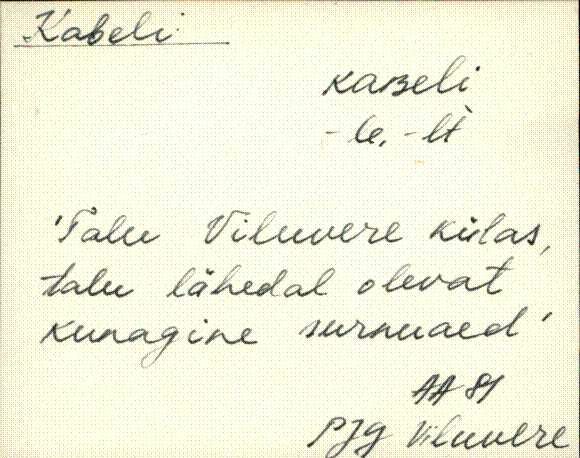 Kabeli
kaʙeli
-le, -lt̀
'Talu Viluvere külas,
talu lähedal olevat
kunagine surnuaed'
AA 81
PJg Viluvere